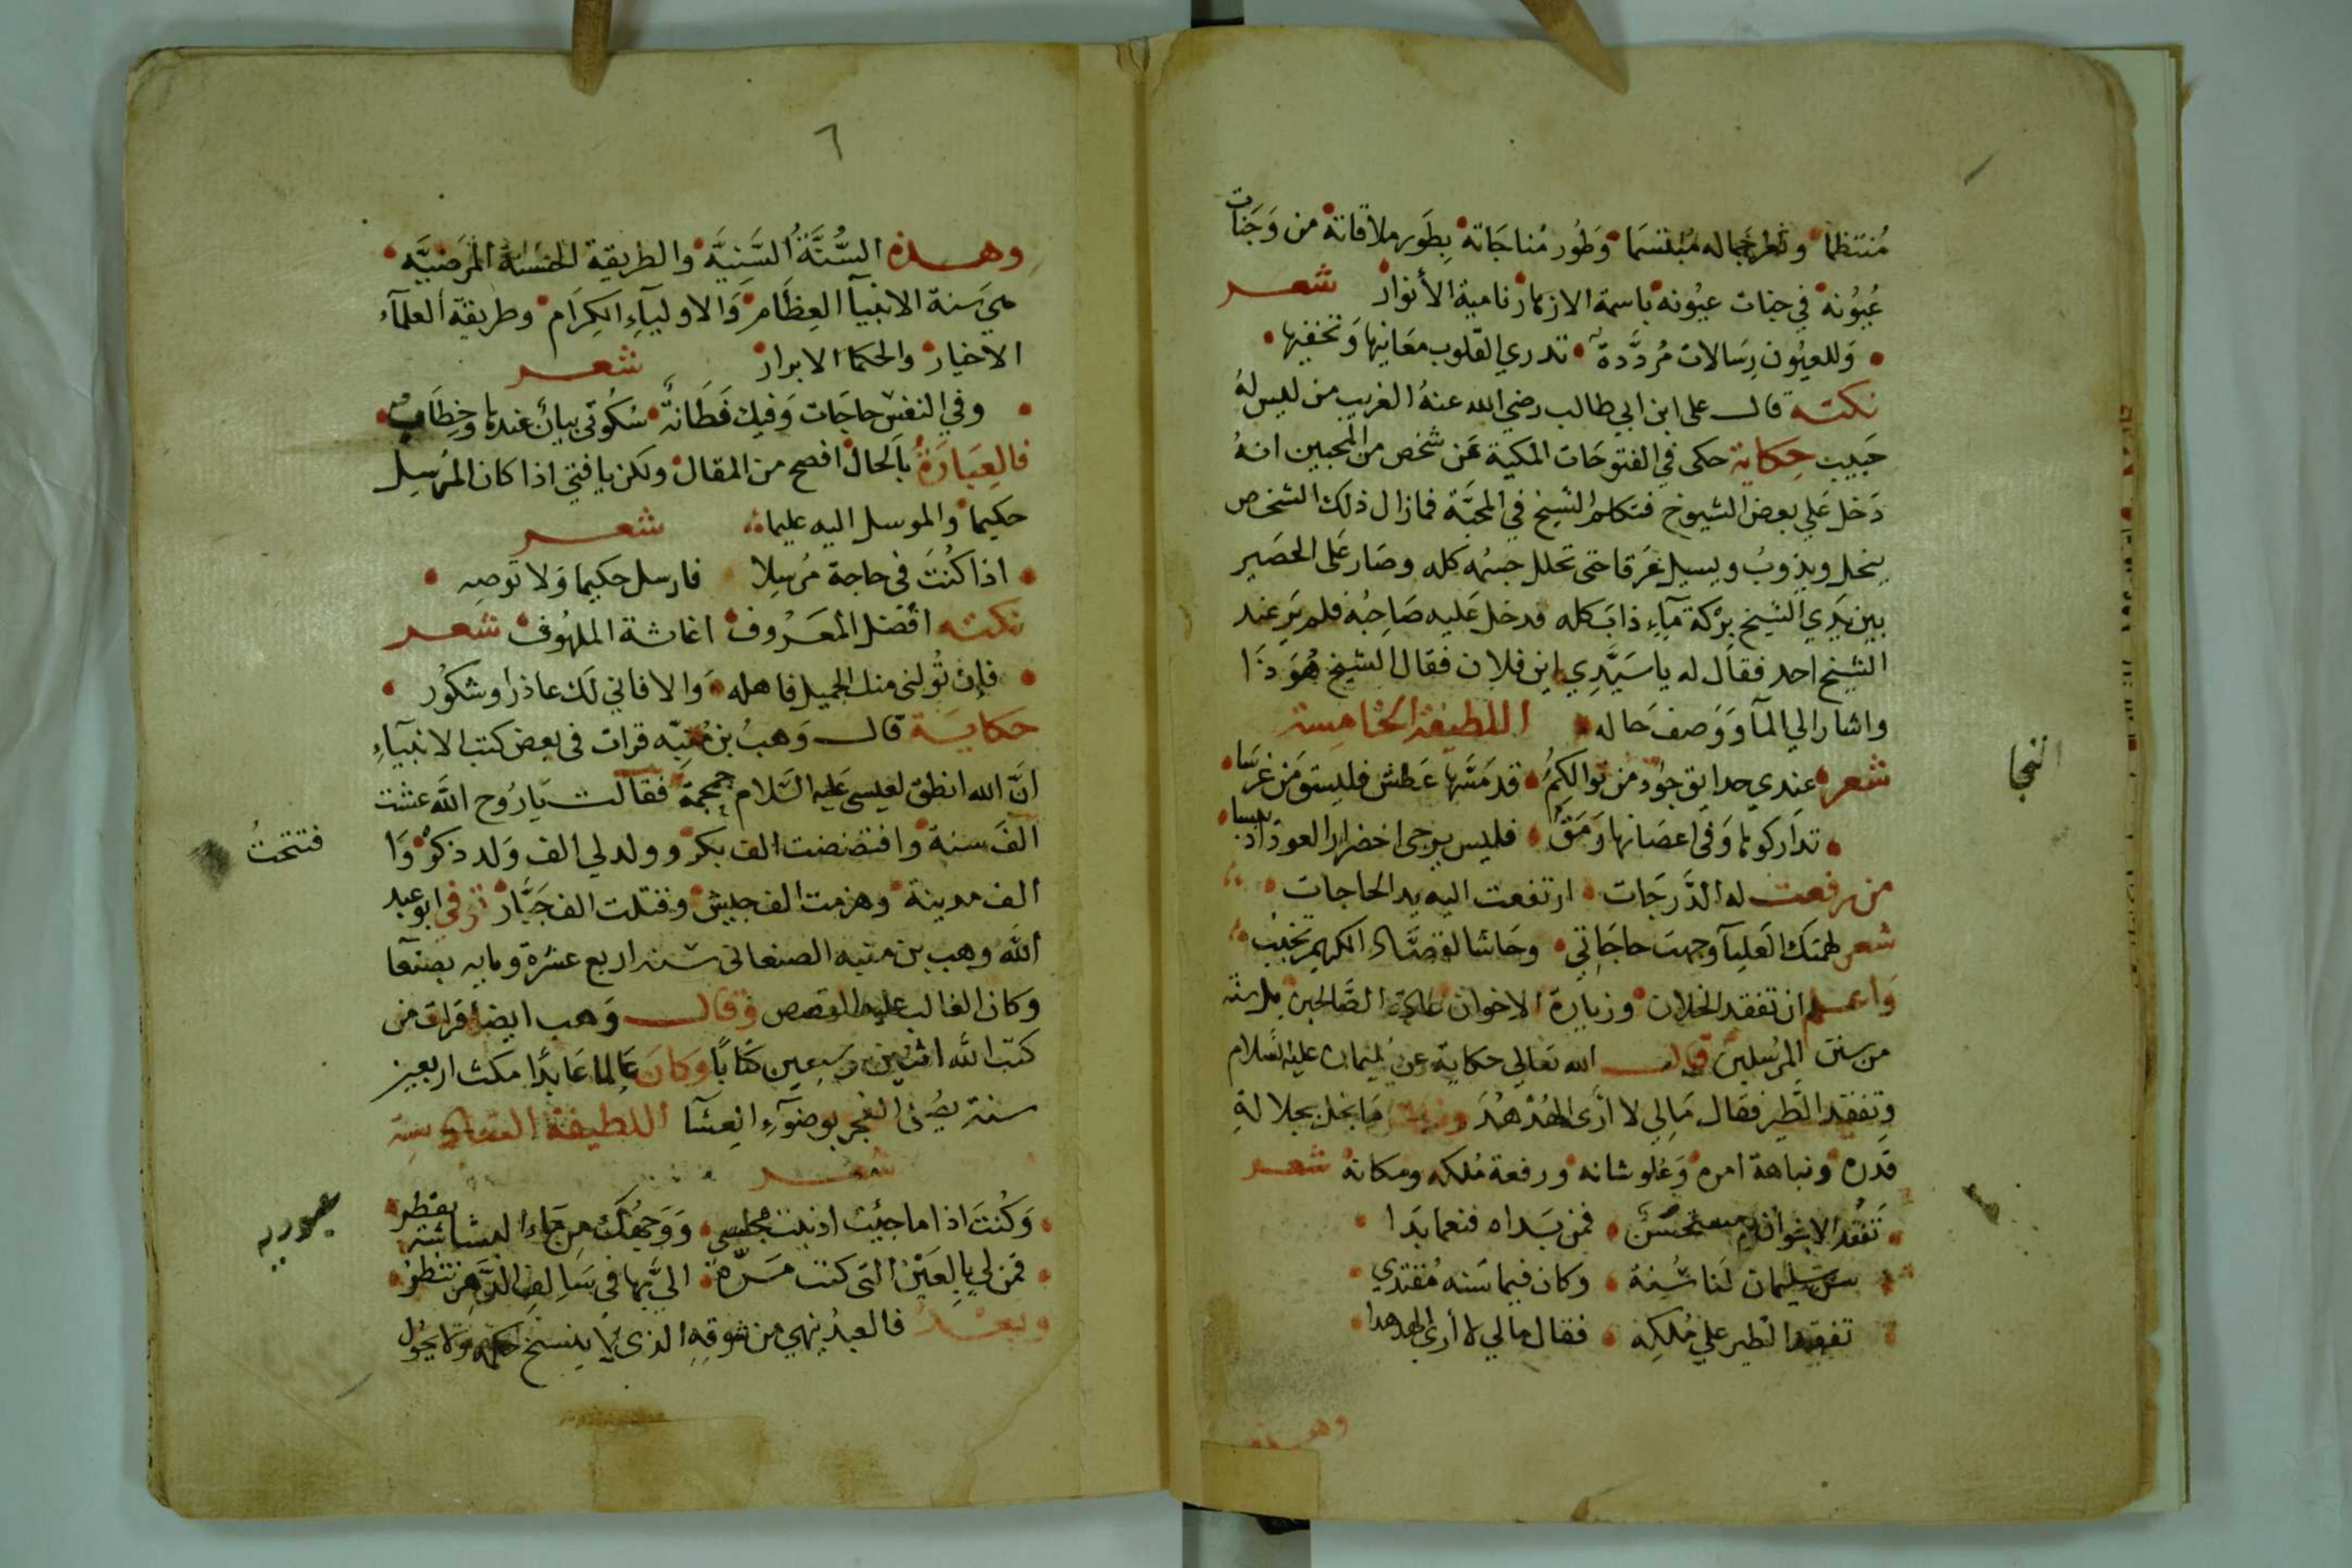 مُنتظمًا وثغر جماله مُبتسمًا وَطُور مُناجَاته بِطَور ملاقاته من وَجَنات
عُيُونهُ في جنات عيُونه باسمة الازهار نامية الأنوار شعر
وَللعيُون رِسَالات مُردَّدة تدري القلوب معَانيها وَتخفيها
نكتة قال على ابن ابي طالب رضي الله عنهُ الغريب من ليس لهُ
حَبيب حِكاية حكى في الفتوحَات المكية عَن شخص من المحبين انهُ
دَخل عَلي بعض الشيوخ فتكلم الشيخ في المحبَّة فمازال ذلك الشخص
ينحل ويذوبُ ويسيل عَرقا حتى تحلل جسمه كله وصَار عَلى الحصَير
بين يَدي الشيخ بِرْكة مَآءٍ ذابَ كله فدخل عَليه صَاحِبهُ فلم يَرَ عند
الشيخ احد فقال له يا سَيّدِي اين فلان فقال الشيخ هُوَ ذَا
واشار الي المآ وَوَصفَ حَاله اللطيفة الخامسة
شعر عندي حدايق جود من نوالكمُ قد مَسَّها عَطش فليسق مَن غرسَا
تدَاركوها وَفى اغصَانها رَمَق فليس يرجى اخضرار العود اذ يبسا
من رفعت له الدَّرجَات ارتفعت اليه يد الحاجات
شعر لهمتك العَليآ وجهت حاجَاتي وحَاشا لقصَّاد الكريم تخيبُ
وَاعلم ان تفقد الخلان وزيارة الاخوان الصَّالحين
من سنن المرسَلين قال الله تعَالي حكاية عن سُليمان عليه السَّلام
وتفقد الطير فقال مَا لي لا أرَى الهُدْهُدَ مَا يخل بجلالةِ
قَدره ونباهة امره وَعُلو شانه ورفعة مُلكه ومكانه شعر
تَفقُّد الاخوان مستحسَن فمن بَداه فنعما بَدا
سن سليمان لَنا سُنة وكان فيما سَنه مُقتدي
تفقد الطير علي مُلكِه فقال مالي لا أري الهدهدا
وهذه
النجا
٦
وهذه السُّنَّةُ السَّنِيَّة والطريقة الحسنة المرَضيَّه
هي سَنة الانبيآ العِظَام وَالاوليآءِ الكِرَام وطريقة العلمآء
الاخيار والحكما الابرار شعر
وفي النفس حاجَات وَفيك فَطَانةٌ سُكُوتى بيانٌ عندها وخِطَابُ
فالعِبَارَةُ بالحَال افصح من المقال ولكن يا فتي اذا كان المرُسِل
حكيما والمرسل اليه عليما شعر
اذا كُنتَ في حاجة مُرسِلا فارسل حكيما وَلا تُوصِه
نكته افضل المعَرُوف اغاثة الملهُوف شعر
فإن تُولنى منك الجميل فاهله وَالا فاني لك عاذر وشكُور
حكايَة قال وَهبُ بن مُنبّه قرات فى بعض كتب الانبيآءِ
انّ الله انطق لعيسى عَليه السَّلام جمجمة فقالت يَارُوح الله عشت
الفَ سنة وافتضضت الف بكر وولد لي الف وَلد ذكر وَا
الف مدينة وهزمت الف جيش وقتلت الف جَبَّار توفي ابو عبد
الله وهب بن منبه الصنعانى سنة اربع عشرة ومايه بصنعآ
وكان الغالب عليه القصص وقال وَهب ايضا قرات من
كتب الله اثنين وَسَبعين كتابًا وَكانَ عَالما عَابدًا مكث اربعين
سنة يصُلى الفجر بوضوءِ العِشَآ اللطيفة السادسة
شعر
وَكُنتَ اذا ما جيئت ادنيت مجلسى وَوَجهُكَ من مَاءِ البشاشة يقطرُ
فمَن لي بالعَيْن التى كنت مَرّة اليَّ بها في سَالف الدَّهر تنظرُ
وَبعْدُ فالعبدُ يُنهي من شوقِهِ الذى لا ينسخ حكمه وَلا يحُول
فتتحتُ